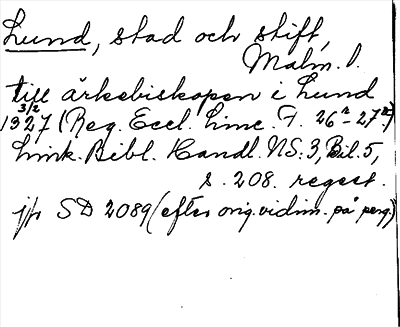 Lund, stad och stift,
Malm. l.
till ärkebiskopen i Lund
3/2
1327 (Reg. Eccl. Linc. F. 26r-27r)
Link. Bibl. Handl. NS: 3, Bil. 5,
s. 208. regest.
jfr SD 2089 (efter orig. vidim. på perg.)